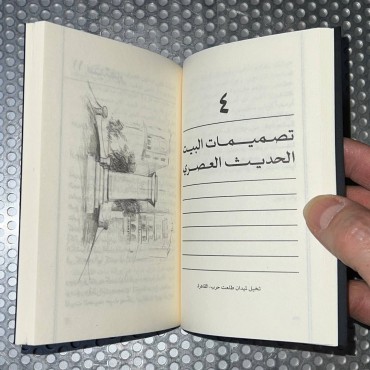 ٤
تصميمات البيت
الحديث العصري
تخيل لميدان طلعت حرب - القاهرة